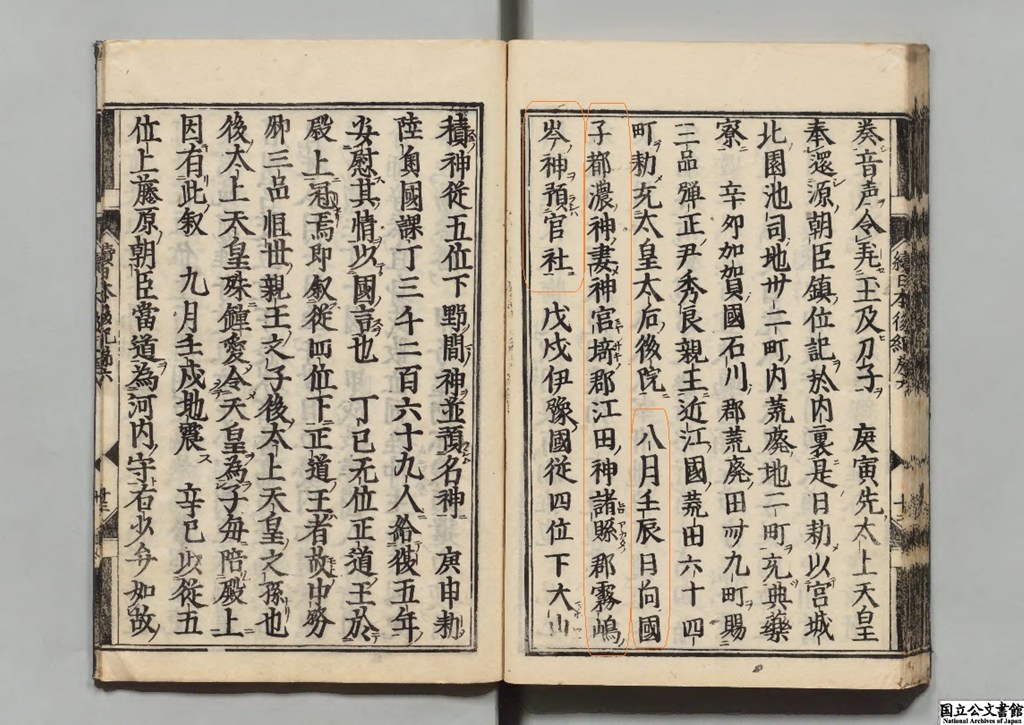 奏音声令弄玉及刀子 庚寅先太上天皇
奉還源朝臣鎮位記於内裏是日勅以宮城
北園池司地卅二町内荒廃地二町充典薬
寮 辛卯加賀國石川郡荒廃田卌九町賜
三品弾正尹秀良親王近江國荒田六十四
町勅充太皇太后後院 八月壬辰日向國
子都濃神妻神宮埼郡江田神諸縣郡霧嶋
岑神預官社 戊戌伊豫國従四位下大山
積神従五位下野間神並預名神 庚申勅
陸奥國課丁三千二百六十九人給復五年
安慰其情以國言也 丁巳无位正道王於
殿上冠焉即叙従四位下正道王者故中務
卿三品恒世親王之子後太上天皇之孫也
後太上天皇殊鍾愛令天皇為子毎陪殿上
因有此叙 九月壬戌地震 辛巳以従五
位上藤原朝臣當道為河内守右少弁如故
十
廿三
国立公文書館
National Archives of Japan